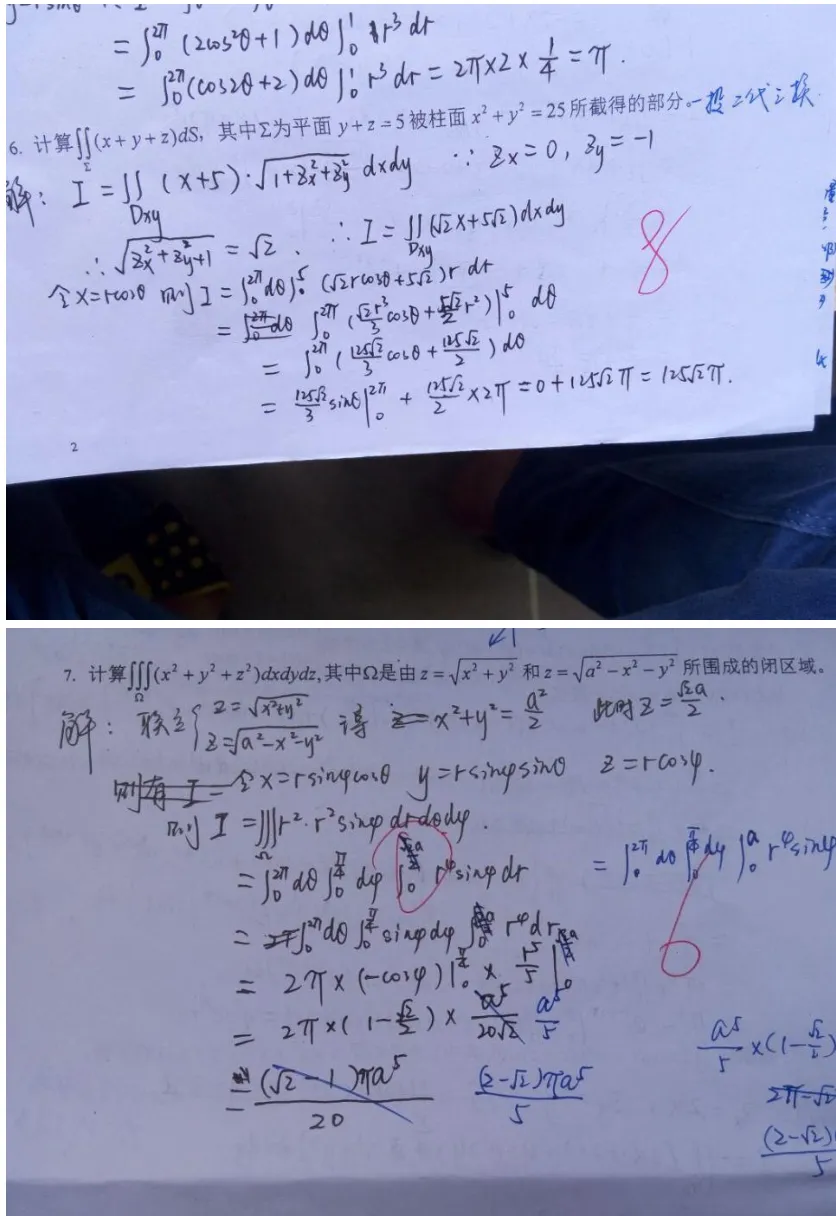 = ∫₀^{2π} (2cos²θ+1) dθ ∫₀¹ r³ dr
= ∫₀^{2π} (cos2θ+2) dθ ∫₀¹ r³ dr = 2π×2×1/4 = π.
6. 计算∬_Σ(x+y+z)dS, 其中Σ为平面 y+z=5 被柱面 x²+y²=25 所截得的部分。一投二代三换
解: I = ∬_{Dxy} (x+5)·√(1+z_x²+z_y²) dxdy ∵ z_x=0, z_y=-1
∴ √(z_x²+z_y²+1) = √2. ∴ I = ∬_{Dxy} (√2x+5√2) dxdy
8
令x=rcosθ 则 I = ∫₀^{2π} dθ ∫₀⁵ (√2rcosθ+5√2) r dr
= ∫₀^{2π} dθ ∫₀^{2π} (√2r³/3 cosθ + 5√2/2 r²)|₀⁵ dθ
= ∫₀^{2π} (125√2/3 cosθ + 125√2/2) dθ
= 125√2/3 sinθ|₀^{2π} + 125√2/2 ×2π = 0+125√2π = 125√2π.
2
7. 计算∭_Ω(x²+y²+z²)dxdydz,其中Ω是由 z=√(x²+y²) 和 z=√(a²-x²-y²) 所围成的闭区域。
解: 联立{z=√(x²+y²) z=√(a²-x²-y²) 得 x²+y²=a²/2 此时 z=√2a/2.
则有 I = 令 x=rsinφcosθ y=rsinφsinθ z=rcosφ.
则 I = ∭_Ω r²·r²sinφ drdθdφ.
= ∫₀^{2π} dθ ∫₀^{π/4} dφ ∫₀^a r⁴sinφ dr
= ∫₀^{2π} dθ ∫₀^{π/4} dφ ∫₀^a r⁴sinφ
6
= ∫₀^{2π} dθ ∫₀^{π/4} sinφdφ ∫₀^a r⁴dr
= 2π×(-cosφ)|₀^{π/4} × r⁵/5 |₀^a
= 2π×(1-√2/2) × a⁵/20√2 a⁵/5
a⁵/5 ×(1-√2/2)
= (√2-1)πa⁵/20 (2-√2)πa⁵/5
2π-√2
(2-√2)/5